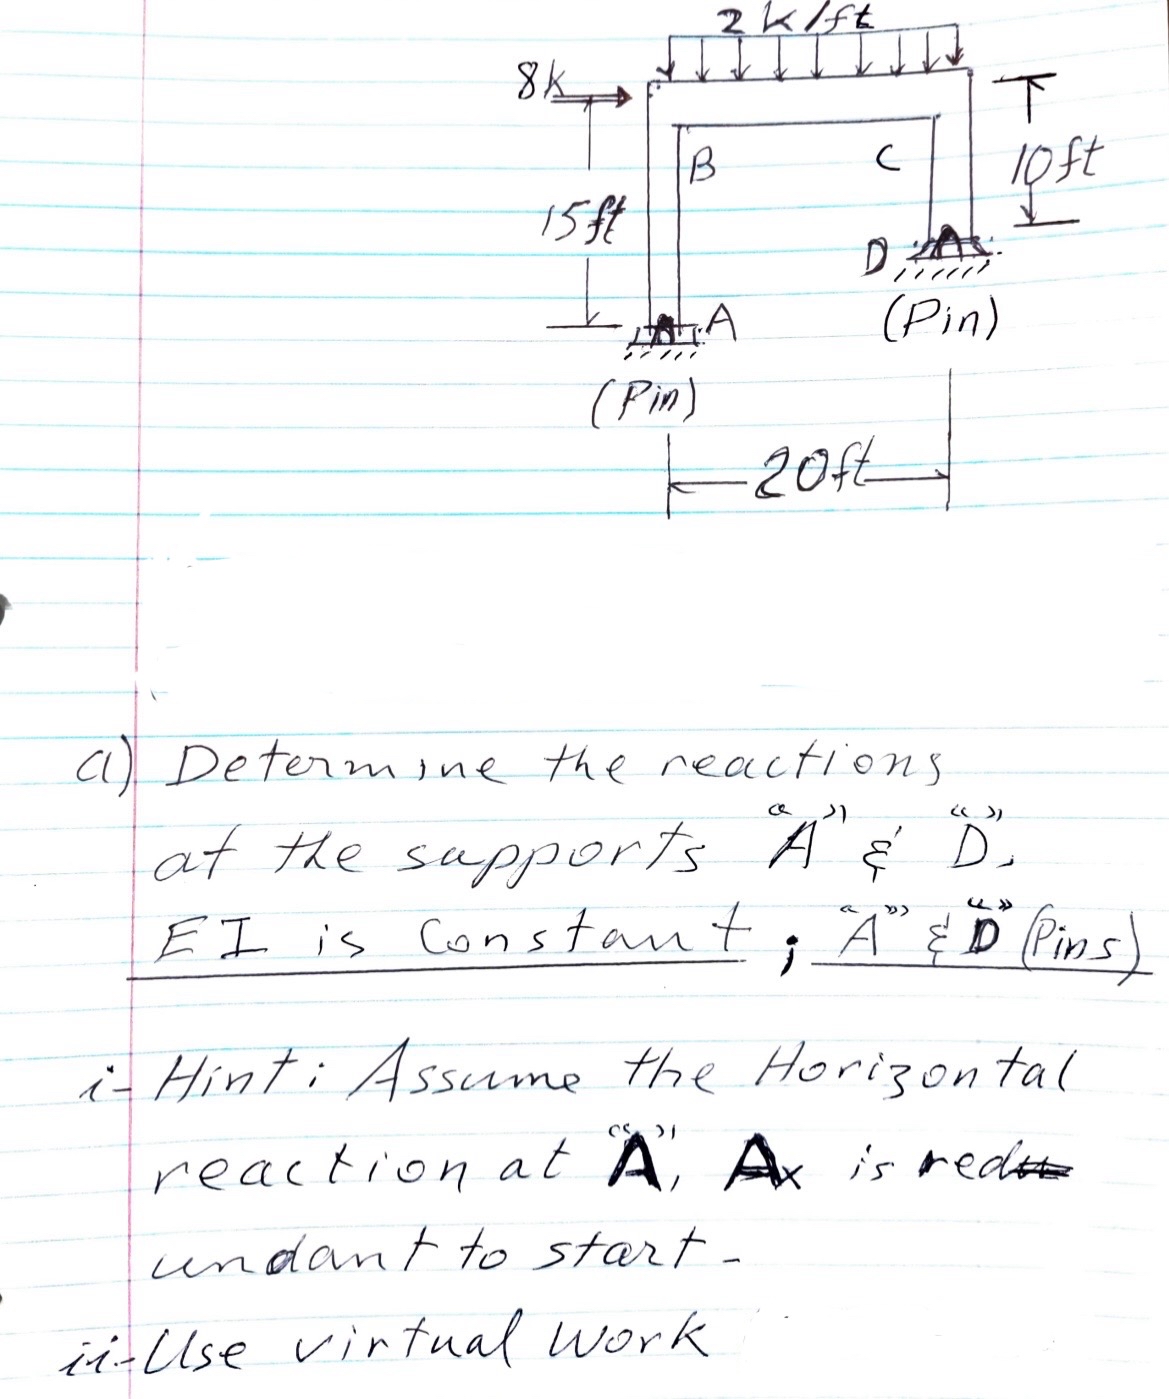 2 k/ft
8k
B
C
10ft
15ft
D
A
(Pin)
(Pin)
20ft
a) Determine the reactions
at the supports "A" & "D".
EI is Constant; "A" & "D" (Pins)
i- Hint: Assume the Horizontal
reaction at "A", Ax is red
undant to start-
ii- Use virtual work